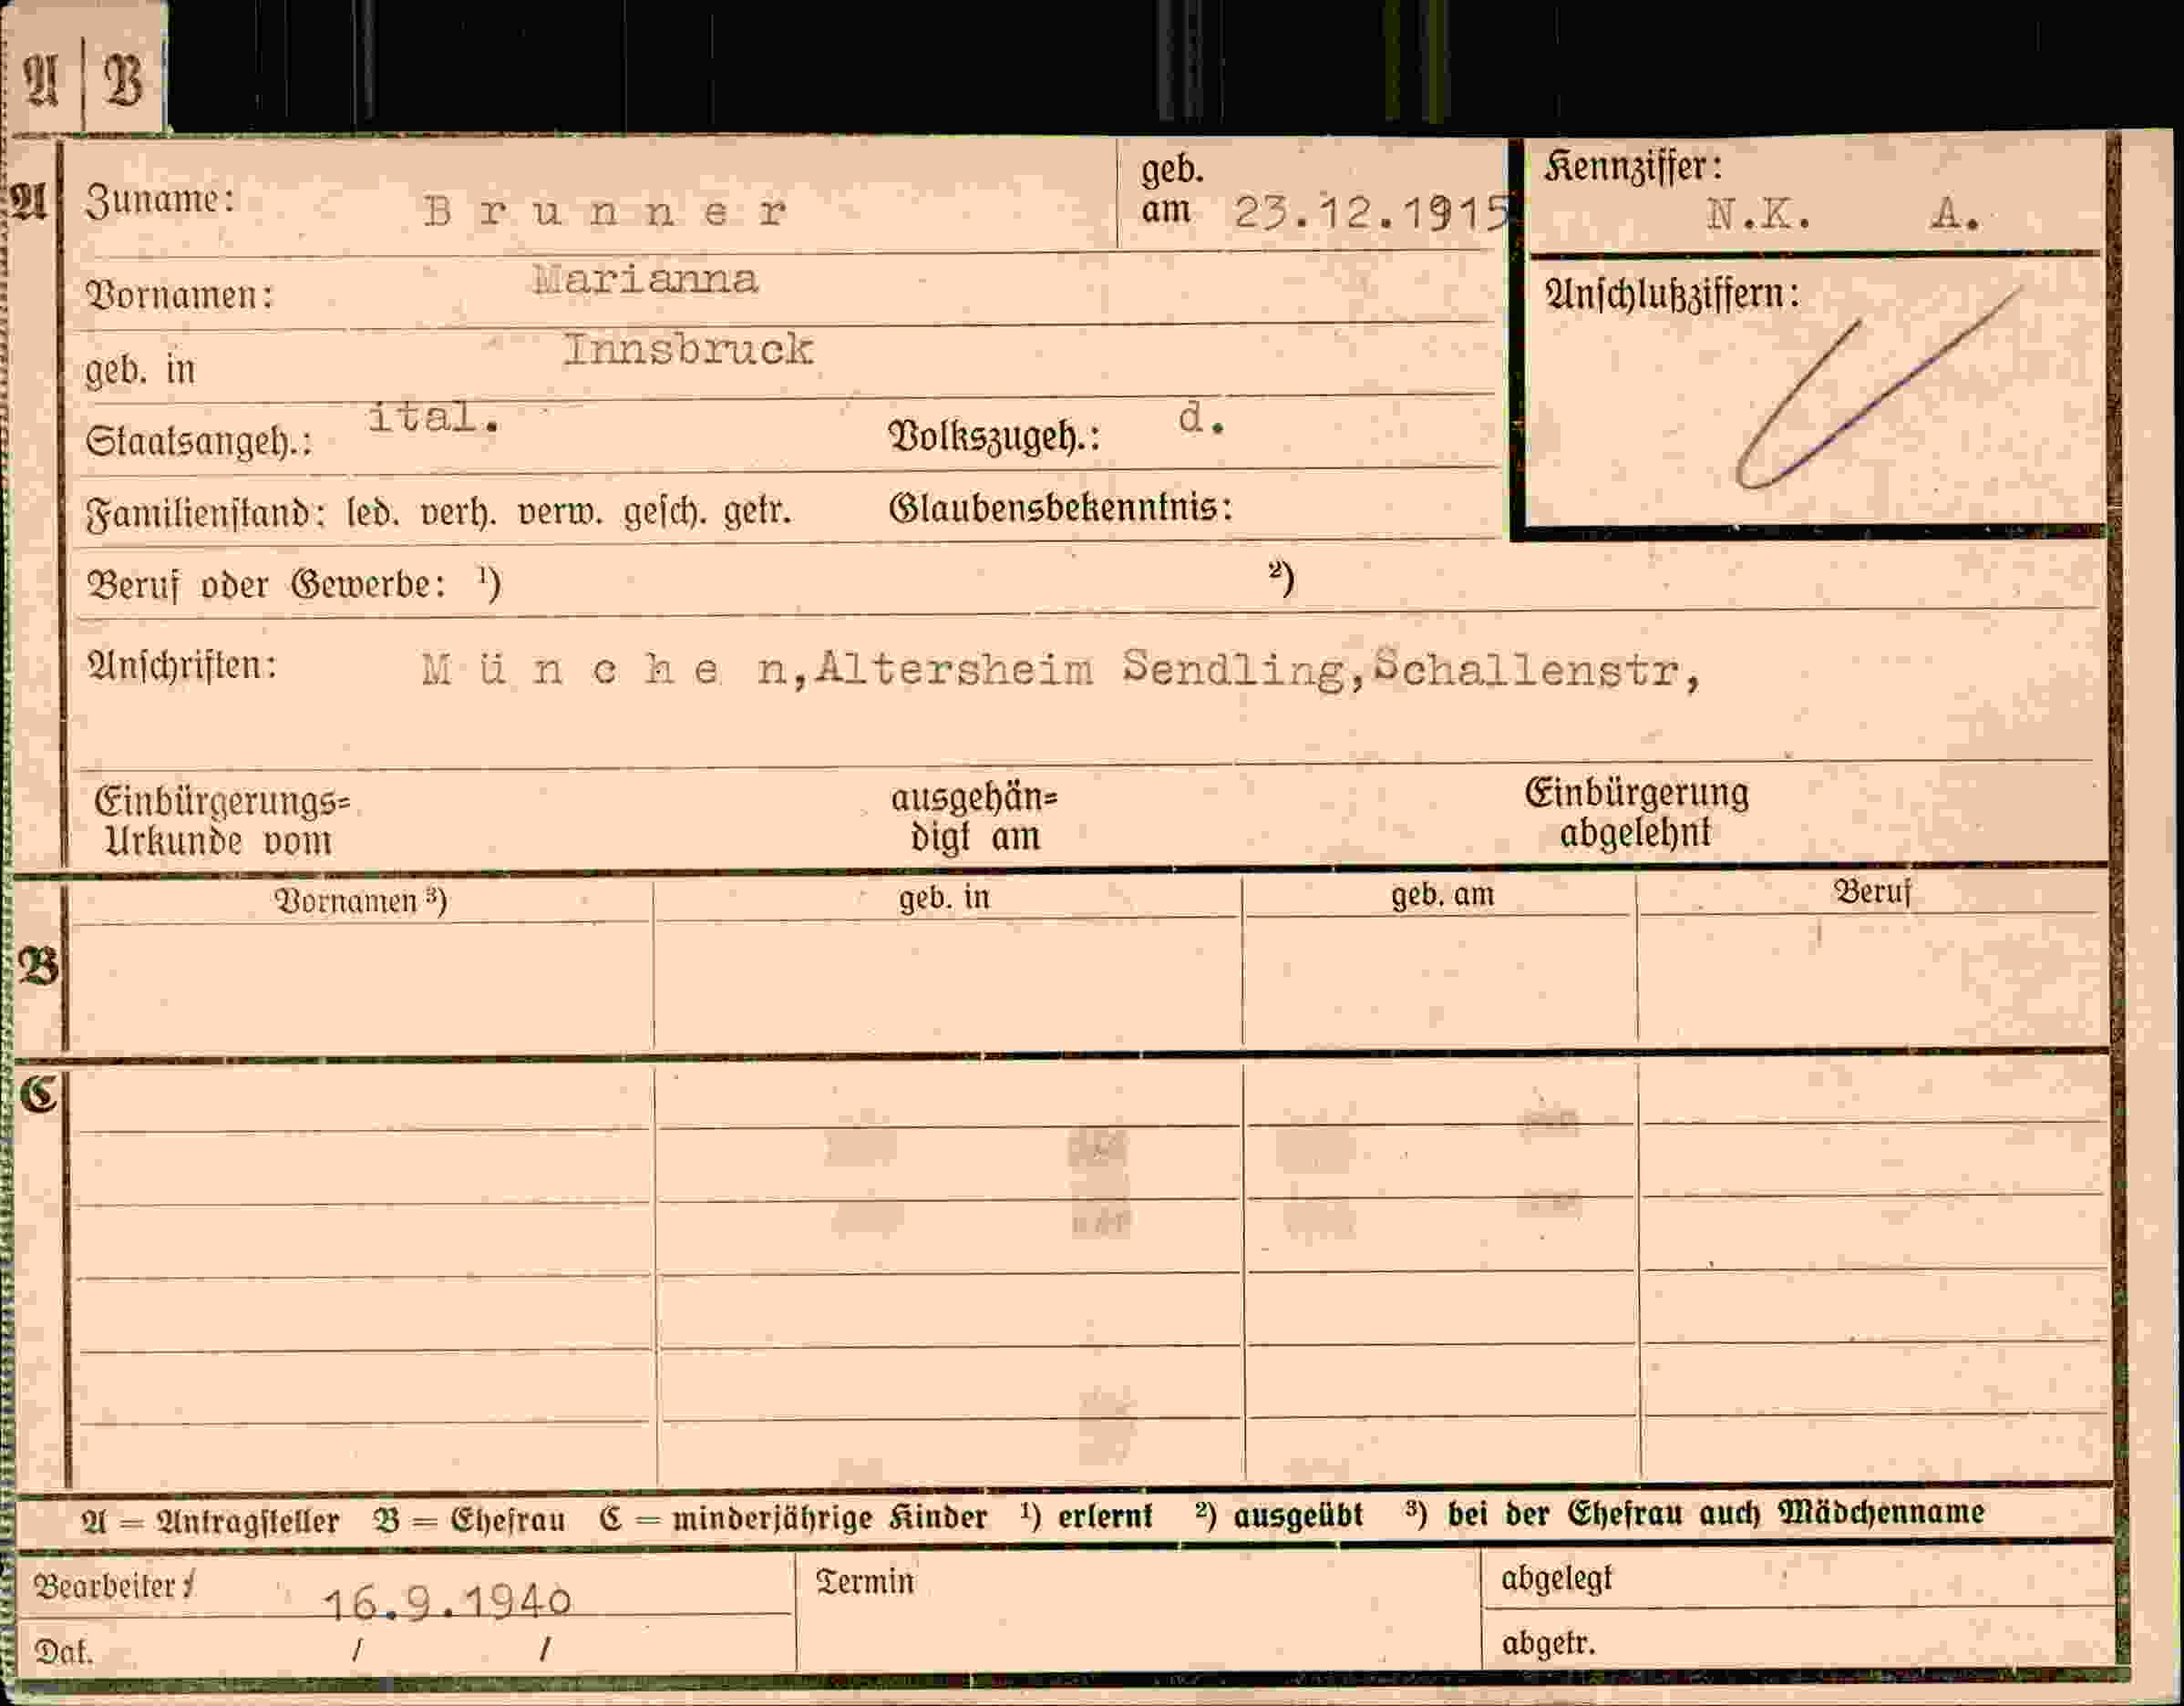 A | B
A Zuname: B r u n n e r geb. am 23.12.1915
Kennziffer: N.K. A.
Vornamen: Marianna
Anschlußziffern:
geb. in Innsbruck
Staatsangeh.: ital. Volkszugeh.: d.
Familienstand: led. verh. verw. gesch. getr. Glaubensbekenntnis:
Beruf oder Gewerbe: ¹) ²)
Anschriften: M ü n c h e n,Altersheim Sendling,Schallenstr,
Einbürgerungs= ausgehän= Einbürgerung
Urkunde vom digt am abgelehnt
Vornamen ³) geb. in geb. am Beruf
B
C
A = Antragsteller B = Ehefrau C = minderjährige Kinder ¹) erlernt ²) ausgeübt ³) bei der Ehefrau auch Mädchenname
Bearbeiter: 16.9.1940 Termin abgelegt
Dat. / / abgetr.